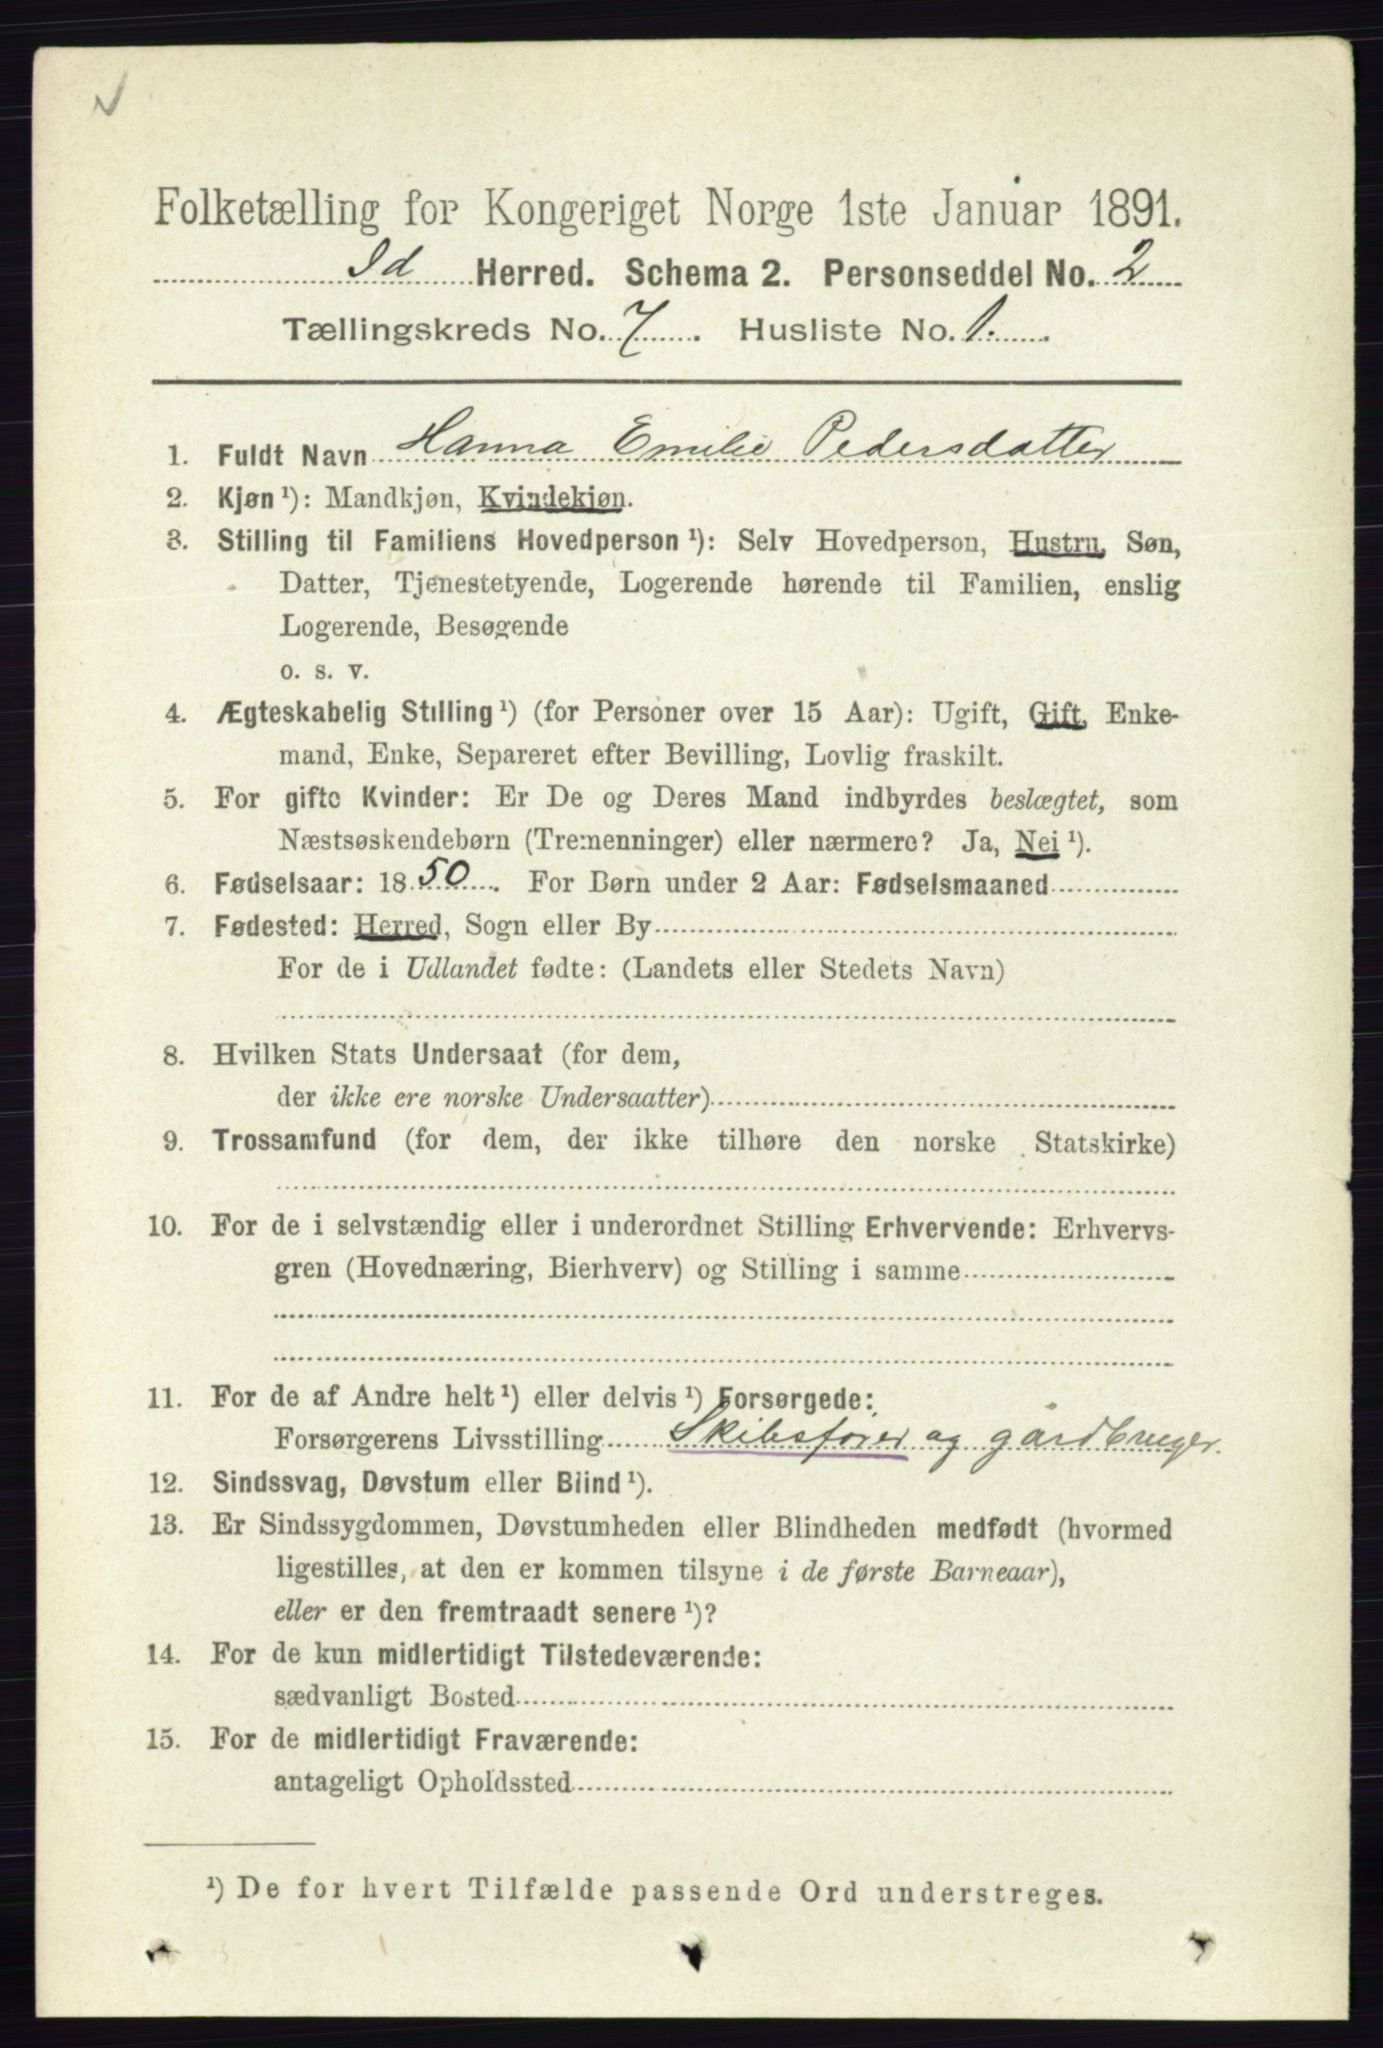 Folketælling for Kongeriget Norge 1ste Januar 1891.
Id Herred. Schema 2. Personseddel No. 2
Tællingskreds No. 7. Husliste No. 1.
1. Fuldt Navn Hanna Emilie Pedersdatter
2. Kjøn ¹): Mandkjøn, Kvindekjøn.
3. Stilling til Familiens Hovedperson ¹): Selv Hovedperson, Hustru, Søn,
Datter, Tjenestetyende, Logerende hørende til Familien, enslig
Logerende, Besøgende
o. s. v.
4. Ægteskabelig Stilling ¹) (for Personer over 15 Aar): Ugift, Gift, Enke-
mand, Enke, Separeret efter Bevilling, Lovlig fraskilt.
5. For gifte Kvinder: Er De og Deres Mand indbyrdes beslægtet, som
Næstsøskendebørn (Tremenninger) eller nærmere? Ja, Nei ¹).
6. Fødselsaar: 1850. For Børn under 2 Aar: Fødselsmaaned
7. Fødested: Herred, Sogn eller By
For de i Udlandet fødte: (Landets eller Stedets Navn)
8. Hvilken Stats Undersaat (for dem,
der ikke ere norske Undersaatter)
9. Trossamfund (for dem, der ikke tilhøre den norske Statskirke)
10. For de i selvstændig eller i underordnet Stilling Erhvervende: Erhvervs-
gren (Hovednæring, Bierhverv) og Stilling i samme
11. For de af Andre helt ¹) eller delvis ¹) Forsørgede:
Forsørgerens Livsstilling Skibsfører og gårdbruger.
12. Sindssvag, Døvstum eller Blind ¹).
13. Er Sindssygdommen, Døvstumheden eller Blindheden medfødt (hvormed
ligestilles, at den er kommen tilsyne i de første Barneaar),
eller er den fremtraadt senere ¹)?
14. For de kun midlertidigt Tilstedeværende:
sædvanligt Bosted
15. For de midlertidigt Fraværende:
antageligt Opholdssted
¹) De for hvert Tilfælde passende Ord understreges.